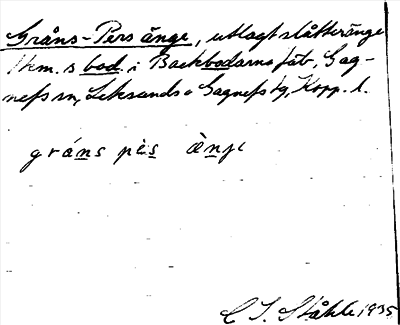 Gråns-Pers änge, utlagt slåtteränge
1 km. s bod. i Backbodarna fäb, Gag-
nefs sn, Leksands o Gagnefs tg, Kopp. l.
gráns pès ænje
C I. Ståhle 1935